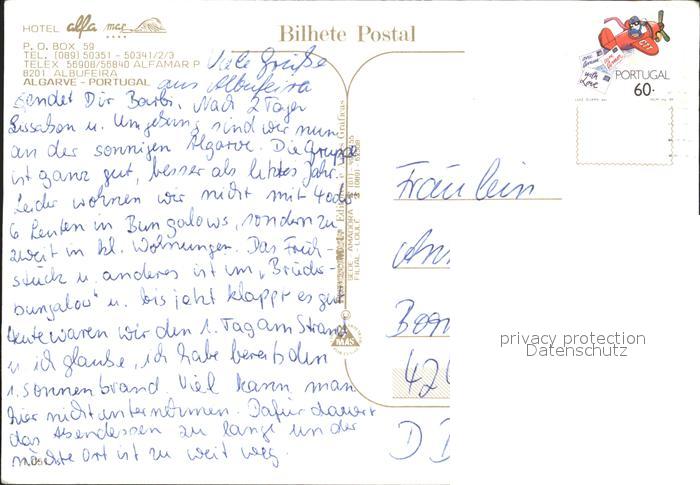 HOTEL alfa mar
P. O. BOX 59
TEL. (089) 50351 - 50341/2/3
TELEX 56908/56840 ALFAMAR P
8201 ALBUFEIRA
ALGARVE - PORTUGAL
Bilhete Postal
PORTUGAL
60.
with Love
Viele Grüße
aus Albufeira
sendet Dir Barbi. Nach 2 Tagen
Lissabon u. Umgebung sind wir nun
an der sonnigen Algarve. Die Gruppe
ist ganz gut, besser als letztes Jahr.
Leider wohnen wir nicht mit 4 oder
6 Leuten in Bungalows, sondern zu
zweit in kl. Wohnungen. Das Früh-
stück u. anderes ist im „Brüder-
bungalow" u. bis jetzt klappt es gut
Heute waren wir den 1. Tag am Strand
u. ich glaube, ich habe bereits den
1. Sonnenbrand. Viel kann man
hier nicht unternehmen. Dafür dauert
das Abendessen zu lange un der
nächste Ort ist zu weit weg.
SEDE: AMADORA
FILIAL: LOULÉ
MAS
Fräulein
D
privacy protection
Datenschutz